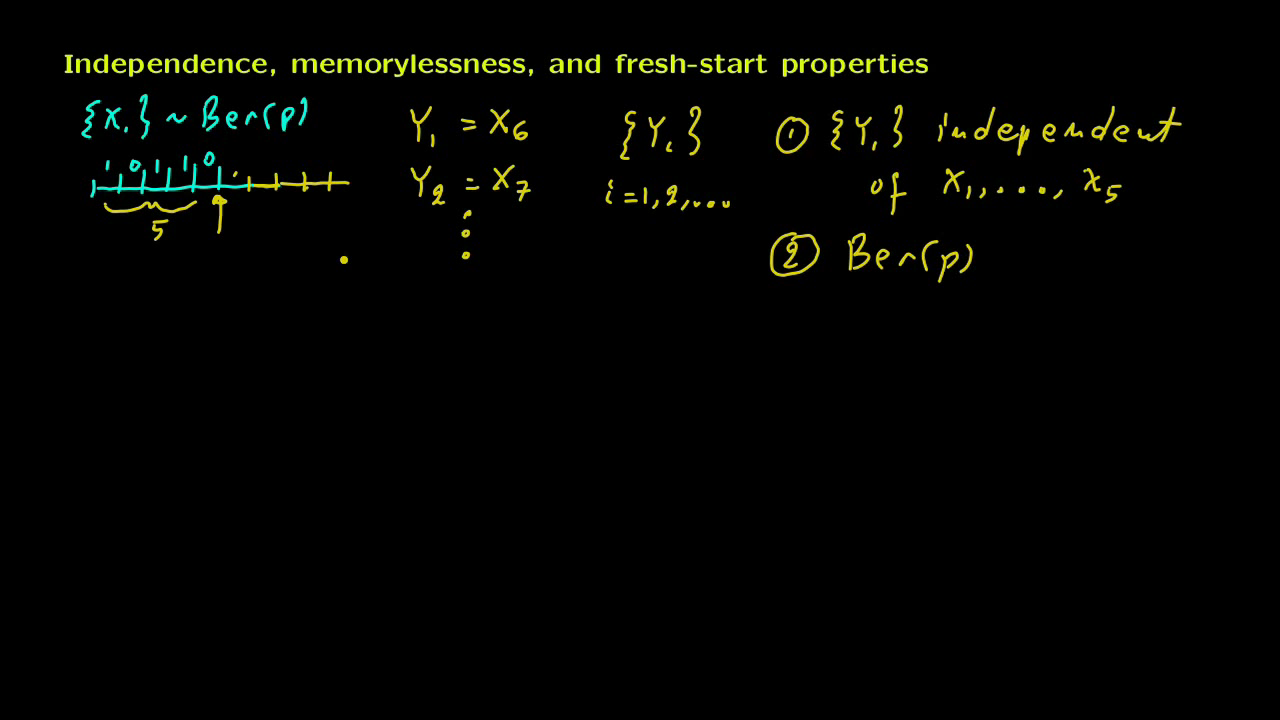 Independence, memorylessness, and fresh-start properties
{Xᵢ} ~ Ber(p)
1 0 1 1 0
5
Y₁ = X₆
Y₂ = X₇
⋮
{Yᵢ}
i = 1, 2, ...
① {Yᵢ} independent
of X₁, ..., X₅
② Ber(p)